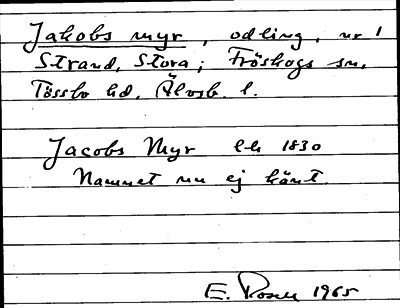 Jakobs myr, odling, nr 1
Strand, Stora; Fröskogs sn,
Tössbo hd, Älvsb. l.
Jacobs Myr lh 1830
Namnet nu ej känt.
E. Rosén 1965